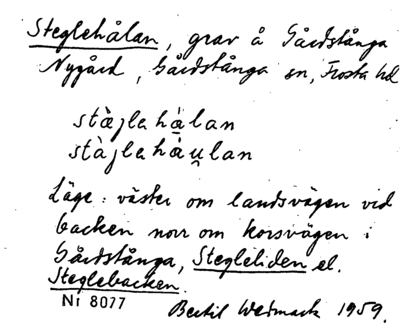 Steglehålan, grav å Gårdstånga
Nygård, Gårdstånga sn, Frosta hd
stæ̀jlahå̀lan
stàjlahå̀u̯lan
Läge: väster om landsvägen vid
backen norr om korsvägen i
Gårdstånga, Stegleliden el.
Steglebacken.
Nr 8077
Bertil Wedmark 1959.